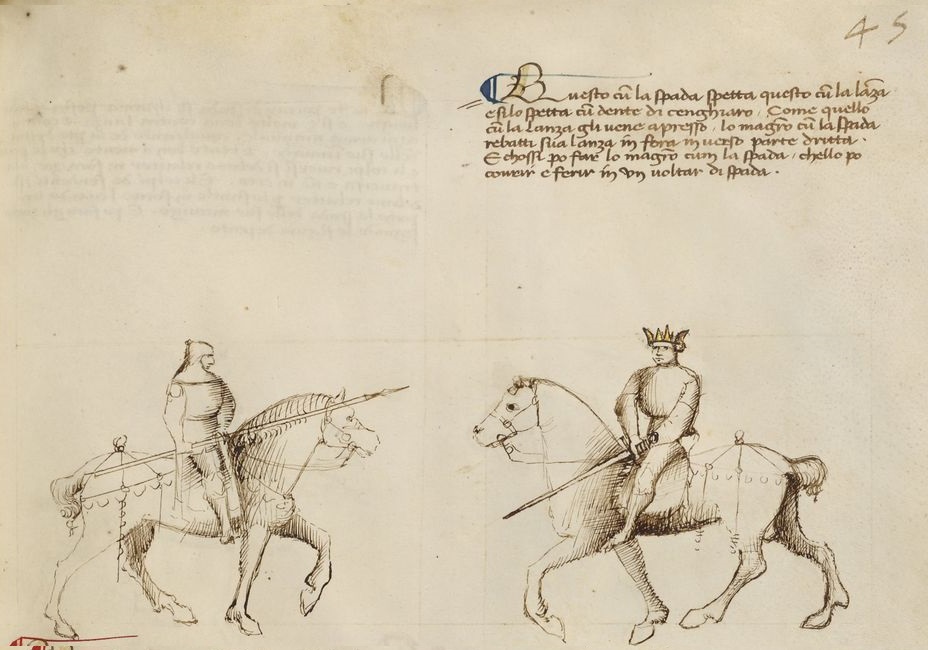 45
Questo cū la spada spetta questo cū la lāza
e si lo spetta cū dente di cenghiaro. Come quello
cū la lanza gli vene apresso, lo magrō cū la spada
rebatti sua lanza in fora inverso parte dritta.
E chossi po far lo magrō cum la spada, chello po
courir e ferir in un voltar di spada.